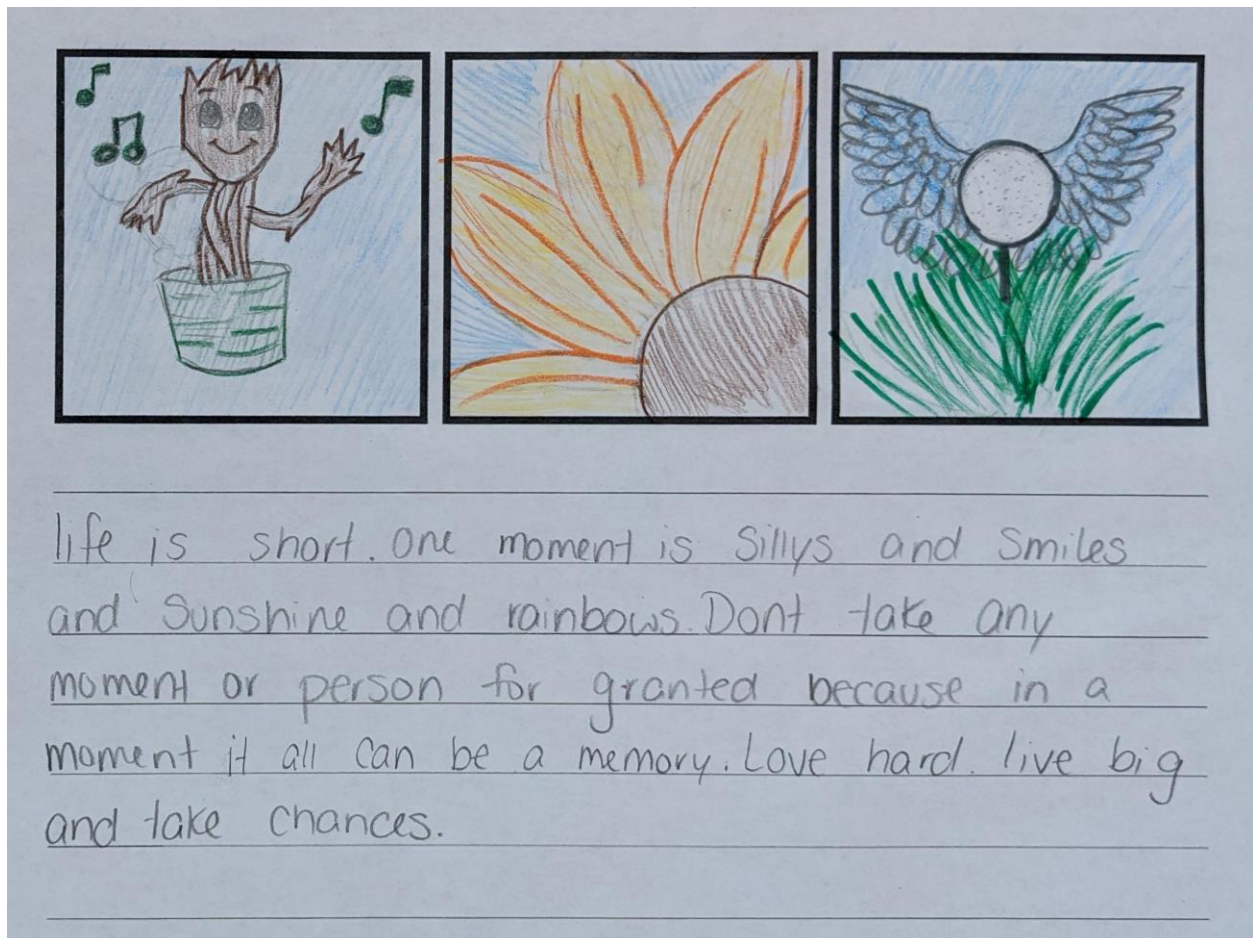 life is short. One moment is Sillys and Smiles
and Sunshine and rainbows. Dont take any
moment or person for granted because in a
moment it all can be a memory. Love hard. live big
and take chances.